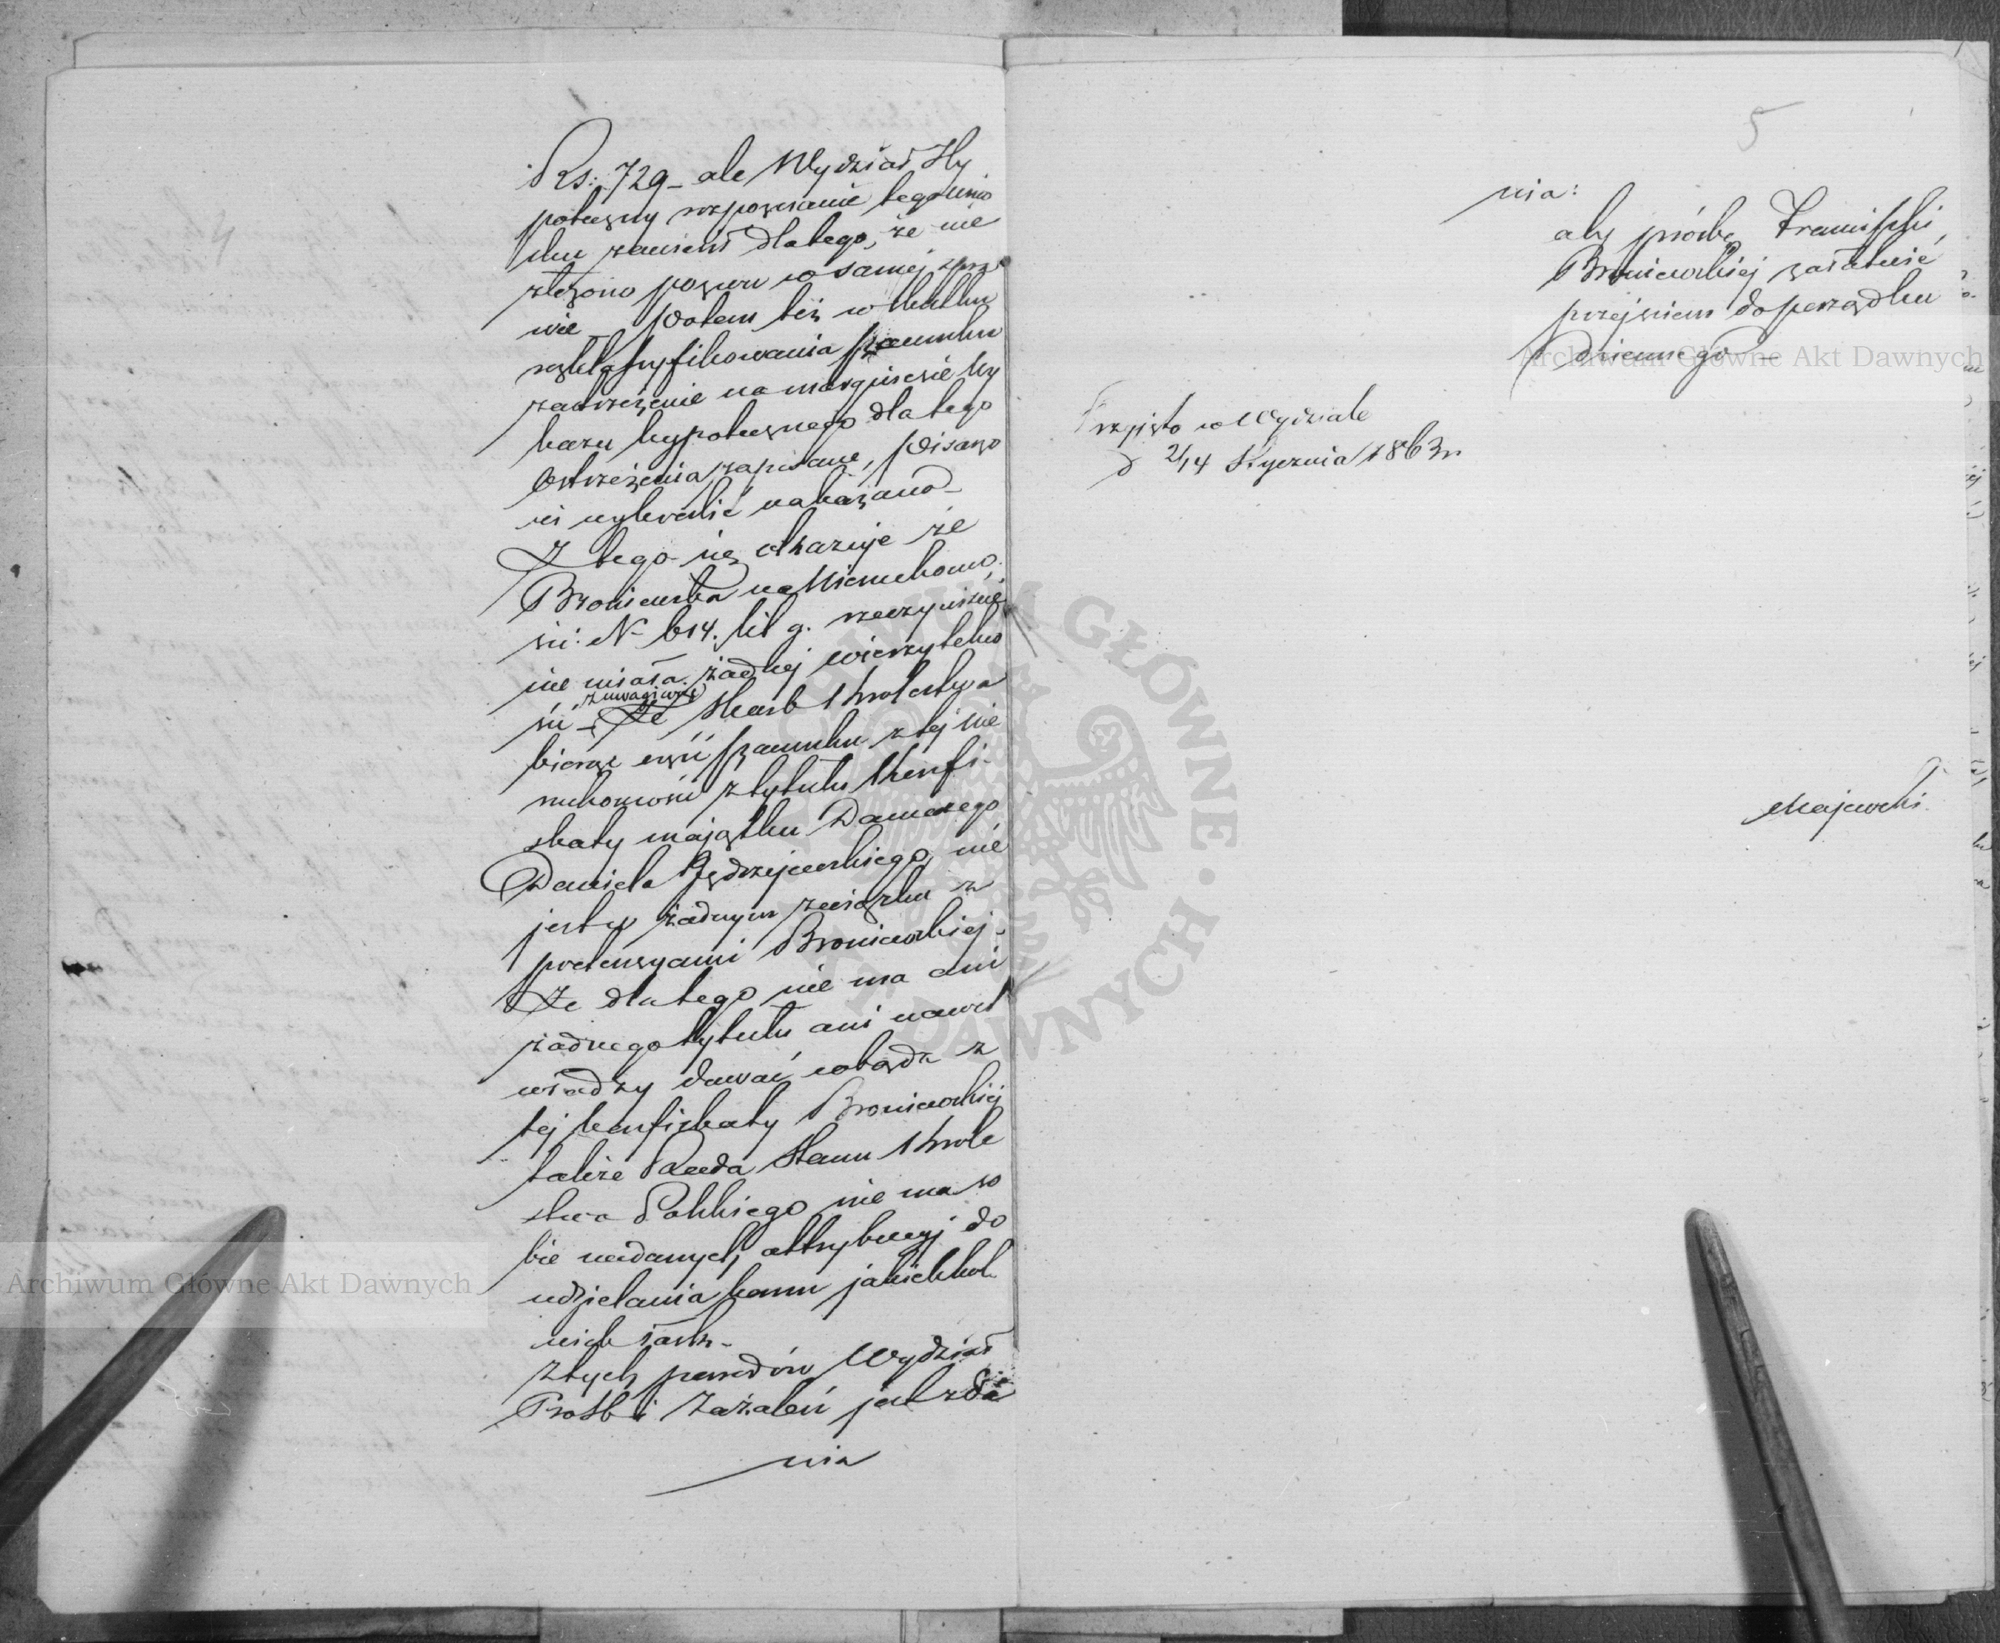 Rs: 729 – ale Wydział Hy
poteczny rozpoznanie tego wnio
sku zawiesił dlatego, że nie
złożono pozwu w samej spra
wie – Potem też w skutku
rozklassyfikowania szacunku
zastrzeżenie na marginesie wy
kazu hypotecznego dla tego
Ostrzeżenia zapisane, Pisarzo
wi wykreślić nakazano –
Z tego się okazuje że
Broniewska na Nieruchomo
ści: N– 614. lit g. rzeczywiście
nie miała żadnej wierzytelno
z uwagi więc
ści – Że Skarb Królestwa
biorąc część szacunku z tej nie
ruchomości z tytułu Konfi-
skaty majątku Dawnego
Daniela Jędrzejewskiego nie
jest w żadnym związku z
pretensyami Broniewskiej –
Że dlatego nie ma ani
żadnego tytułu ani nawet
władzy dawać cobądź z
tej konfiskaty Broniewskiej
także Rada Stanu Króle
stwa Polskiego nie ma so
bie nadanych attrybucyj do
udzielania komu jakichkol
wiek łask –
Z tych powodów Wydział
Próśb i Zażaleń jest zda
nia
5
nia:
aby prośbę Franciszki
Broniewskiej załatwić
przejściem do porządku
dziennego –
Przyjęto w Wydziale
d 2/14 Stycznia 1863 r.
Majewski
Archiwum Główne Akt Dawnych
Archiwum Główne Akt Dawnych
ARCHIWUM GŁÓWNE · AKT DAWNYCH ·